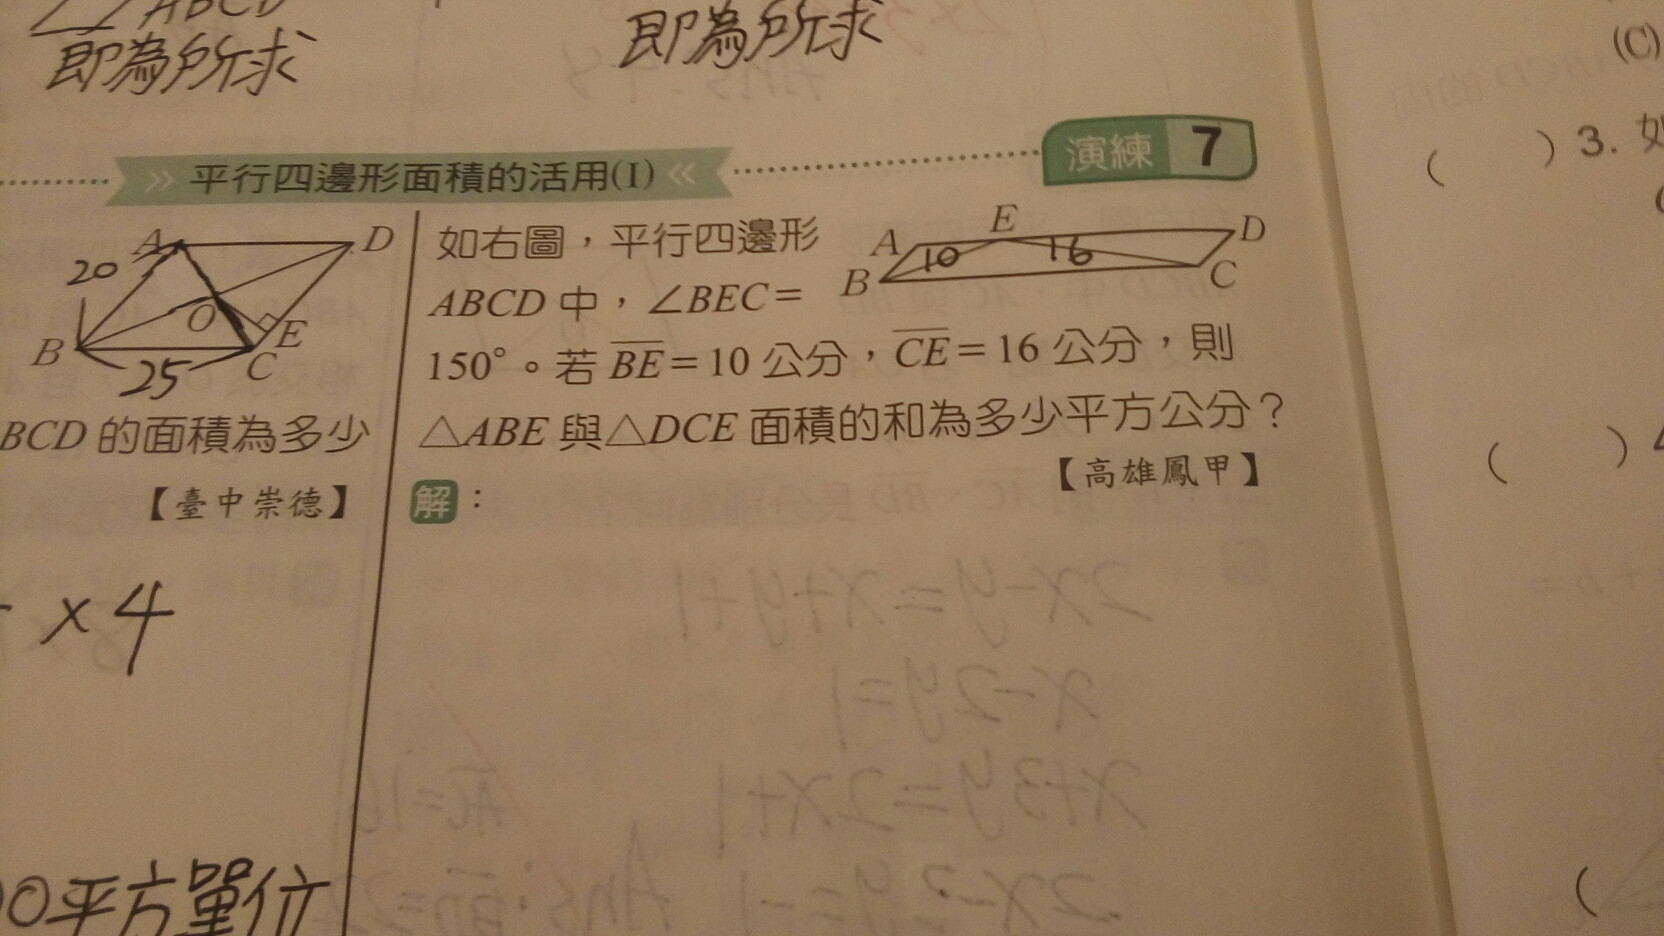 ABCD
即為所求
即為所求
平行四邊形面積的活用(1)
演練 7
A
D
20
O
B
E
C
25
BCD 的面積為多少
【臺中崇德】
× 4
0平方單位
如右圖，平行四邊形
ABCD 中，∠BEC=
150°。若 BE=10 公分，CE=16 公分，則
△ABE 與△DCE 面積的和為多少平方公分？
【高雄鳳甲】
A
E
D
10
16
B
C
解：
(C)
( ) 3. 如
( ) 4
(